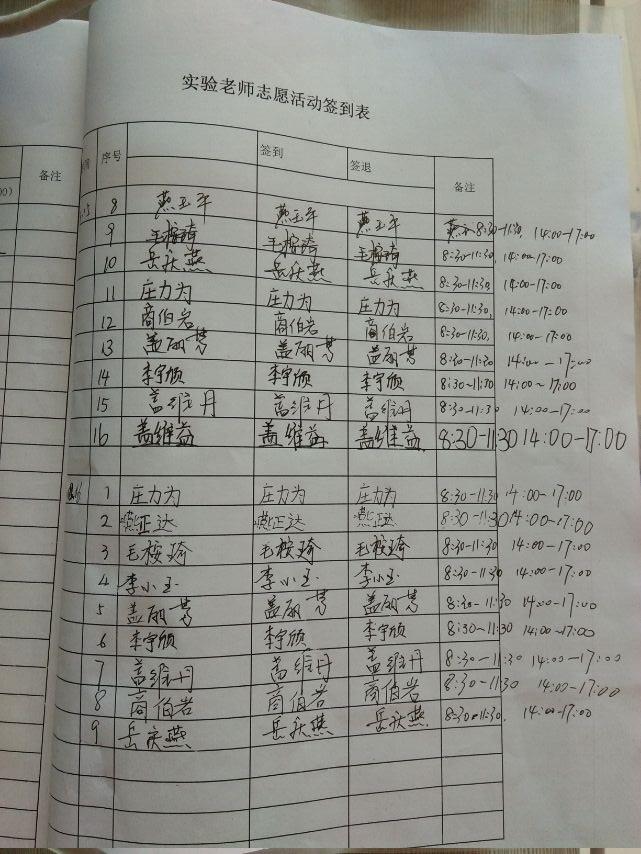 实验老师志愿活动签到表
备注
序号 签到 签退 备注
8 燕玉年 燕玉年 燕玉年 8:30-11:30, 14:00-17:00
9 毛桉琦 毛桉琦 毛桉琦 8:30-11:30, 14:00-17:00
10 岳庆燕 岳庆燕 岳庆燕 8:30-11:30 14:00-17:00
11 庄力为 庄力为 庄力为 8:30-11:30, 14:00-17:00
12 商伯岩 商伯岩 商伯岩 8:30-11:30, 14:00-17:00
13 盖丽梦 盖丽梦 盖丽梦 8:30-11:30 14:00-17:00
14 李宇颀 李宇颀 李宇颀 8:30~11:30 14:00~17:00
15 盖维丹 盖维丹 盖维丹 8:30-11:30 14:00-17:00
16 盖维益 盖维益 盖维益 8:30-11:30 14:00-17:00
1 庄力为 庄力为 庄力为 8:30-11:30 14:00-17:00
2 燕正达 燕正达 燕正达 8:30-11:30 14:00-17:00
3 毛桉琦 毛桉琦 毛桉琦 8:30-11:30 14:00-17:00
4 李小玉 李小玉 李小玉 8:30-11:30 14:00-17:00
5 盖丽梦 盖丽梦 盖丽梦 8:30-11:30 14:00-17:00
6 李宇颀 李宇颀 李宇颀 8:30~11:30 14:00~17:00
7 盖维丹 盖维丹 盖维丹 8:30-11:30 14:00-17:00
8 商伯岩 商伯岩 商伯岩 8:30-11:30 14:00-17:00
9 岳庆燕 岳庆燕 岳庆燕 8:30-11:30, 14:00-17:00